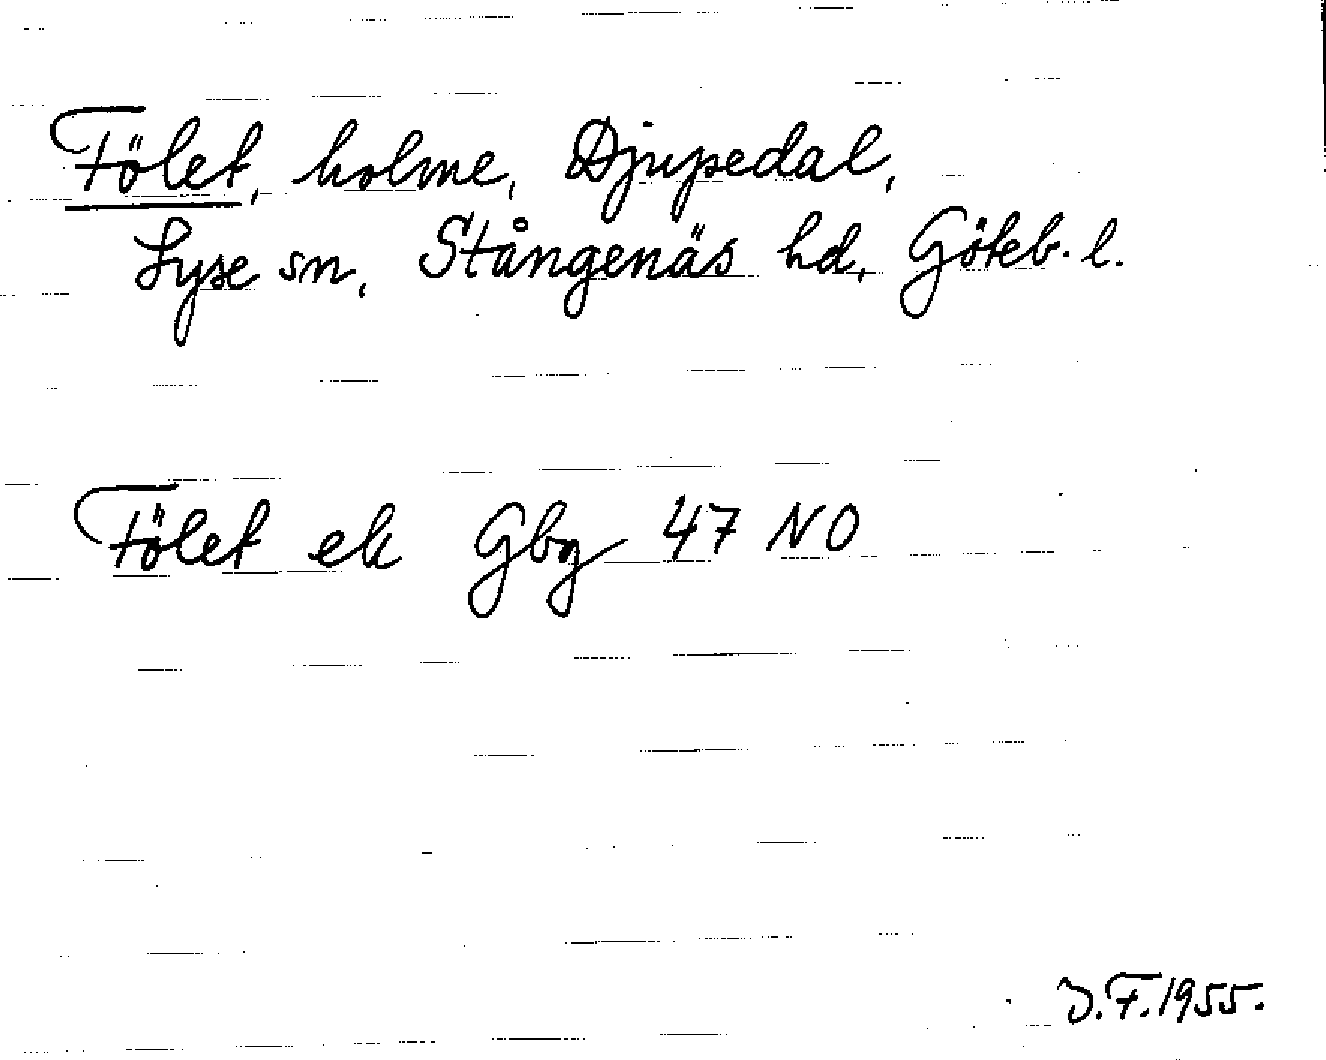 Fölet, holme, Djupedal,
Lyse sn, Stångenäs hd, Göteb. l.
Fölet ek Gbg 47 NO
J.F. 1955.